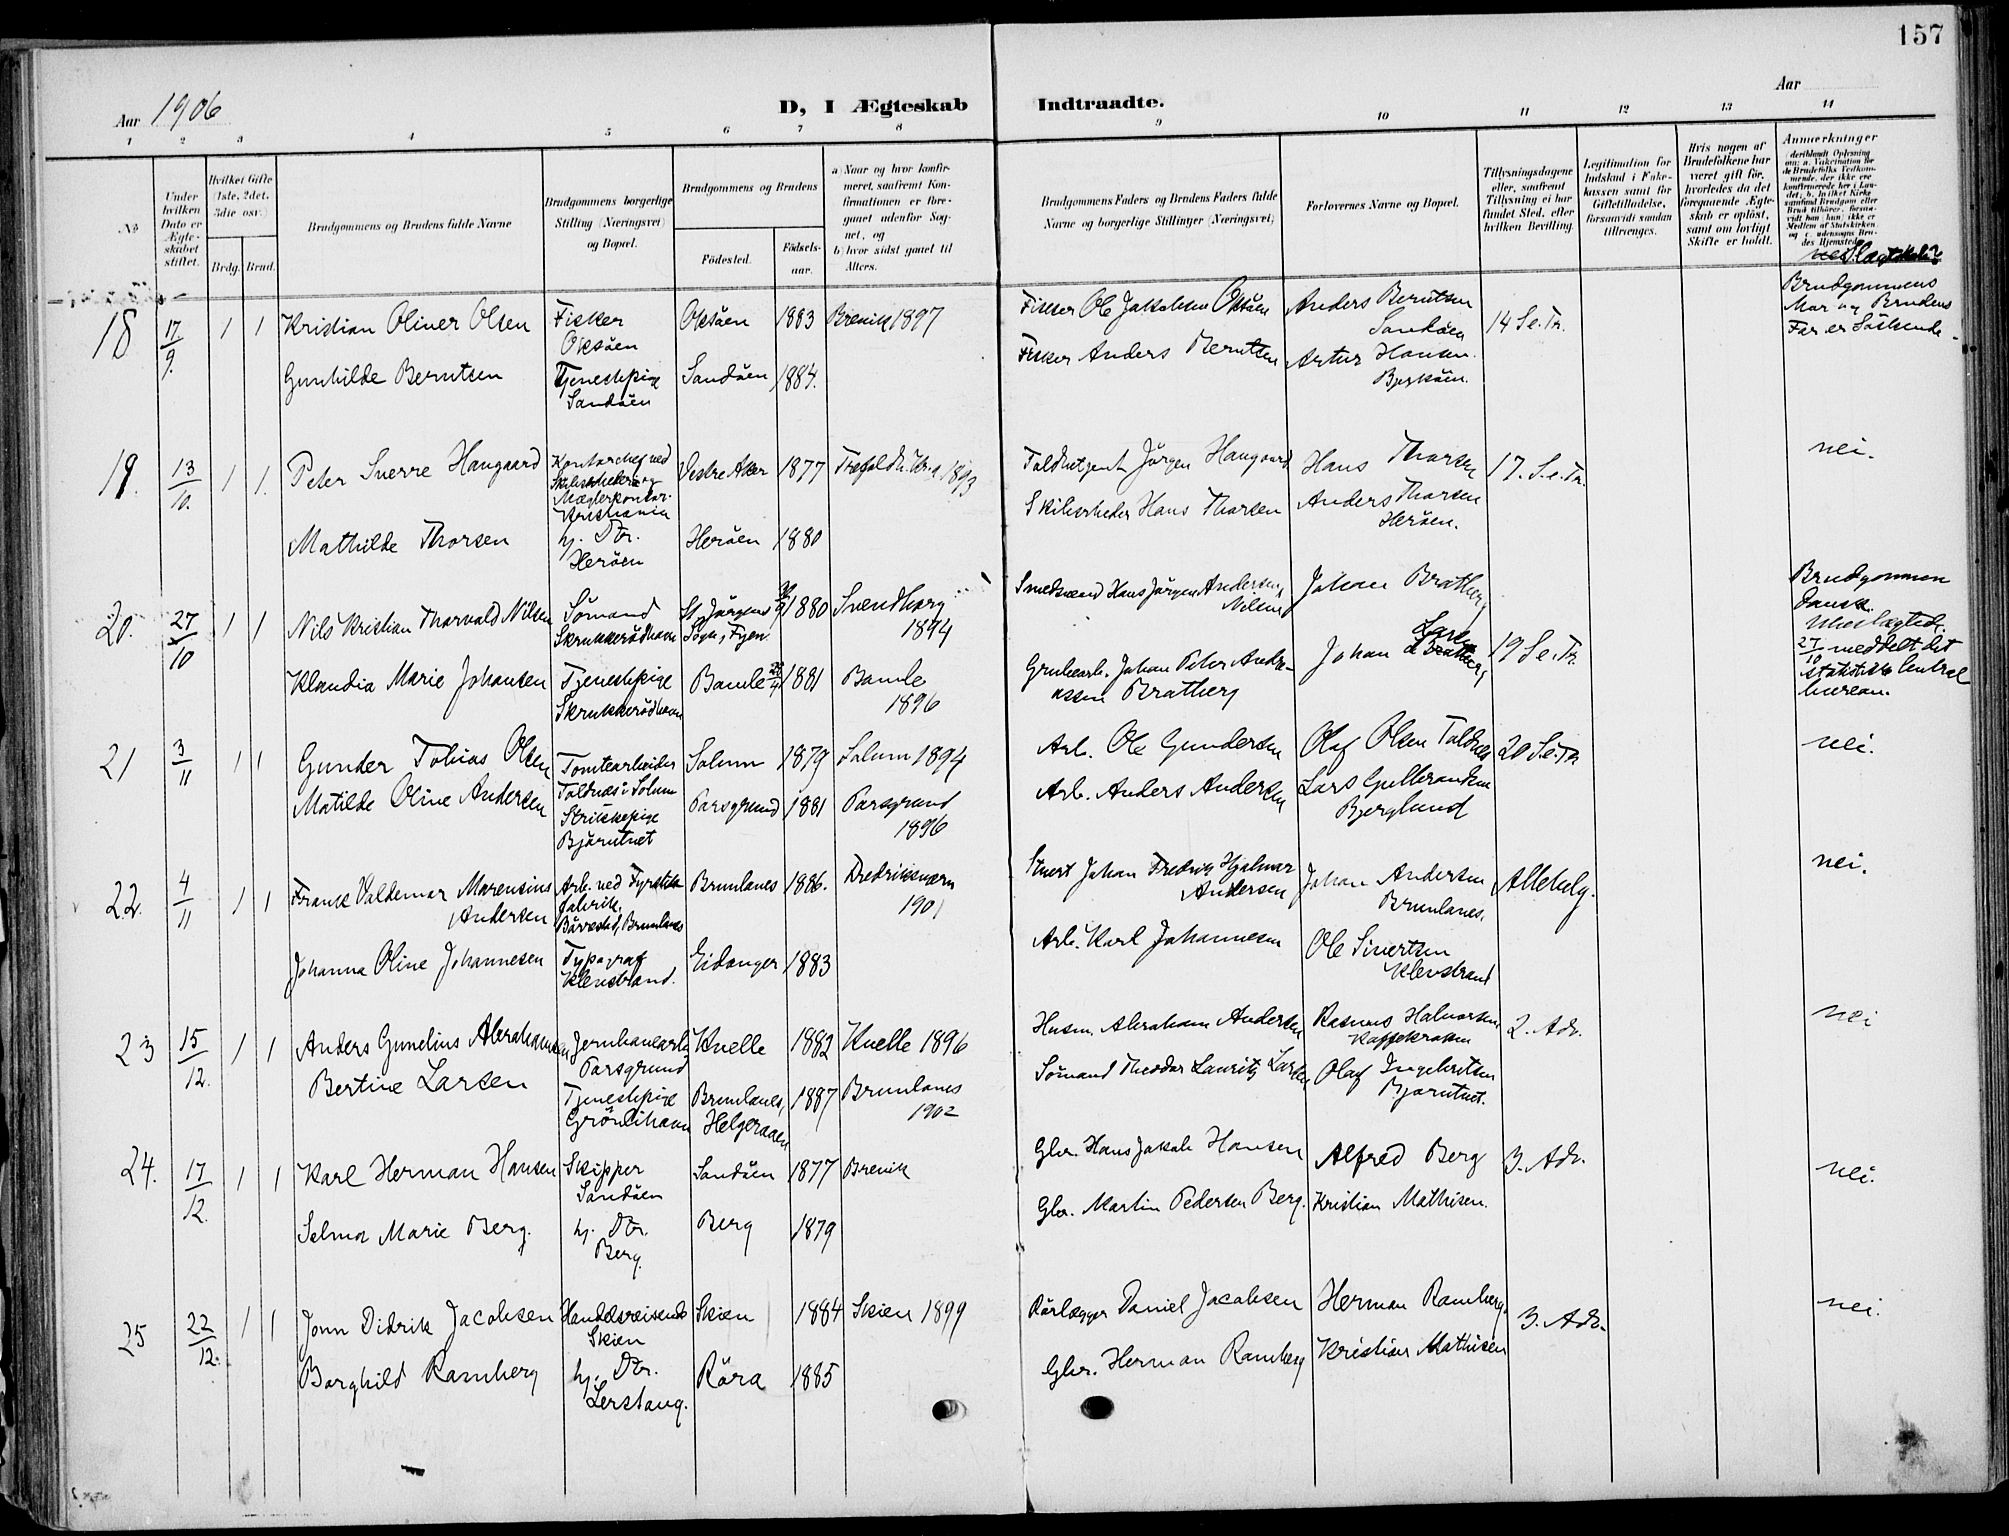 157
Aar 1906
D, I Ægteskab Indtraadte.
Aar
1 2 3 4 5 6 7 8 9 10 11 12 13 14
No
Under hvilken Dato er Ægteskabet stiftet.
Hvilket Gifte (1ste, 2det, 3die osv.)
Brdg. Brud.
Brudgommens og Brudens fulde Navne
Brudgommens borgerlige Stilling (Næringsvei) og Bopæl.
Brudgommens og Brudens
Födested. Födsels-aar.
a) Naar og hvor konfirmeret, saafremt Konfirmationen er foregaaet udenfor Sognet, og
b) hvor sidst gaaet til Alters.
Brudgommens Faders og Brudens Faders fulde Navne og borgerlige Stillinger (Næringsvei)
Forlovernes Navne og Bopæl.
Tillysningsdagene eller, saafremt Tillysning ei har fundet Sted, efter hvilken Bevilling.
Legitimation for Indskud i Enkekassen samt for Giftetilladelse, forsaavidt saadan tiltrænges.
Hvis nogen af Brudefolkene har været gift før, hvorledes da det foregaaende Ægteskab er oplöst, samt om lovligt Skifte er holdt.
Anmerkninger
18 17/9. 1 1 Kristian Oliver Olsen Fisker Oksöen Oksöen 1883 Brevik 1897 Fisker Ole Jakobsen Oksöen Anders Berntsen Sandöen 14 S.e.Tr. Brudgommens Mor og Brudens Far er Söskende.
Gunhilde Berntsen Tjenestepige Sandöen Sandöen 1884. Fisker Anders Berntsen Artur Hansen Bjerköen.
19. 13/10. 1 1. Peter Sverre Haugaard Kontorchef ved Mæglerkontor. Kristiania Vestre Aker 1877 1893 Jörgen Haugaard Hans Thorsen 17. S.e.Tr. nei.
Mathilde Thorsen hj. Dtr. Heröen Heröen 1880 Skibsrheder Hans Thorsen Anders Thorsen Heröen.
20. 27/10 1 1 Nils Kristian Thorvald Nilsen Sömand Skrukkerödhavn St. Jörgens Sogn, Fyen. 1880 Svendborg 1894 Smedsvend Hans Jörgen Andersen Nilsen Johan Bratberg 19 S.e.Tr. Brudgommen Dansk. 27/10 meddelt det statistiske Central bureau.
Klaudia Marie Johansen Tjenestepige Skrukkerödhavn Bamle 1881 Bamle 1896 Grubearb. Johan Peter Andreassen Bratberg Johan Larsen Bratberg
21 3/11 1 1 Gunder Tobias Olsen Tomtearbeider Toldnæs i Solum Solum 1879 Solum 1894 Arb. Ole Gundersen Olaf Olsen Toldnæs 20 S.e.Tr nei.
Matilde Oline Andersen Björntvet Porsgrund 1881 Porsgrund 1896 Arb. Anders Andersen Lars Gulbrandsen Bjerglund
22. 4/11 1 1 Frank Valdemar Marensius Andersen Arb. ved Fyrstikfabrik, Brunlanes Brunlanes 1886. Fredriksværn 1901 Stuert Johan Fredrik Hjalmar Andersen Johan Andersen Brunlanes. Allehelg. nei.
Johanna Oline Johannesen Typograf Klevstrand. Eidanger 1883 Arb. Karl Johannesen Ole Sivertsen Klevstrand
23 15/12. 1 1 Anders Gunelius Abrahamsen Jernbanearb. Porsgrund Kvelle 1882 Kvelle 1896 Husm. Abraham Andersen Rasmus Halvorsen 2. Adv. nei
Bertine Larsen Tjenestepige Grönlihavn Brunlanes, Helgeraaen 1887 Brunlanes 1902 Sömand Theodor Lauritz Larsen Olaf Ingebretsen Bjørntvet.
24. 17/12. 1 1 Karl Herman Hansen Skipper Sandöen Sandöen 1877 Brevik Gbr. Hans Jakob Hansen Alfred Berg 3. Adv. nei.
Selma Marie Berg. hj. Dtr. Berg. Berg 1879 Gbr. Martin Pedersen Berg. Kristian Mathisen.
25 22/12. 1 1 Jonn Didrik Jacobsen Handelsreisende Skien Skien 1884 Skien 1899 Rörlægger Daniel Jacobsen Herman Ramberg. 3. Adv. nei.
Borghild Ramberg hj. Dtr. Lerstang. Röra 1885 Gbr. Herman Ramberg Kristian Mathisen